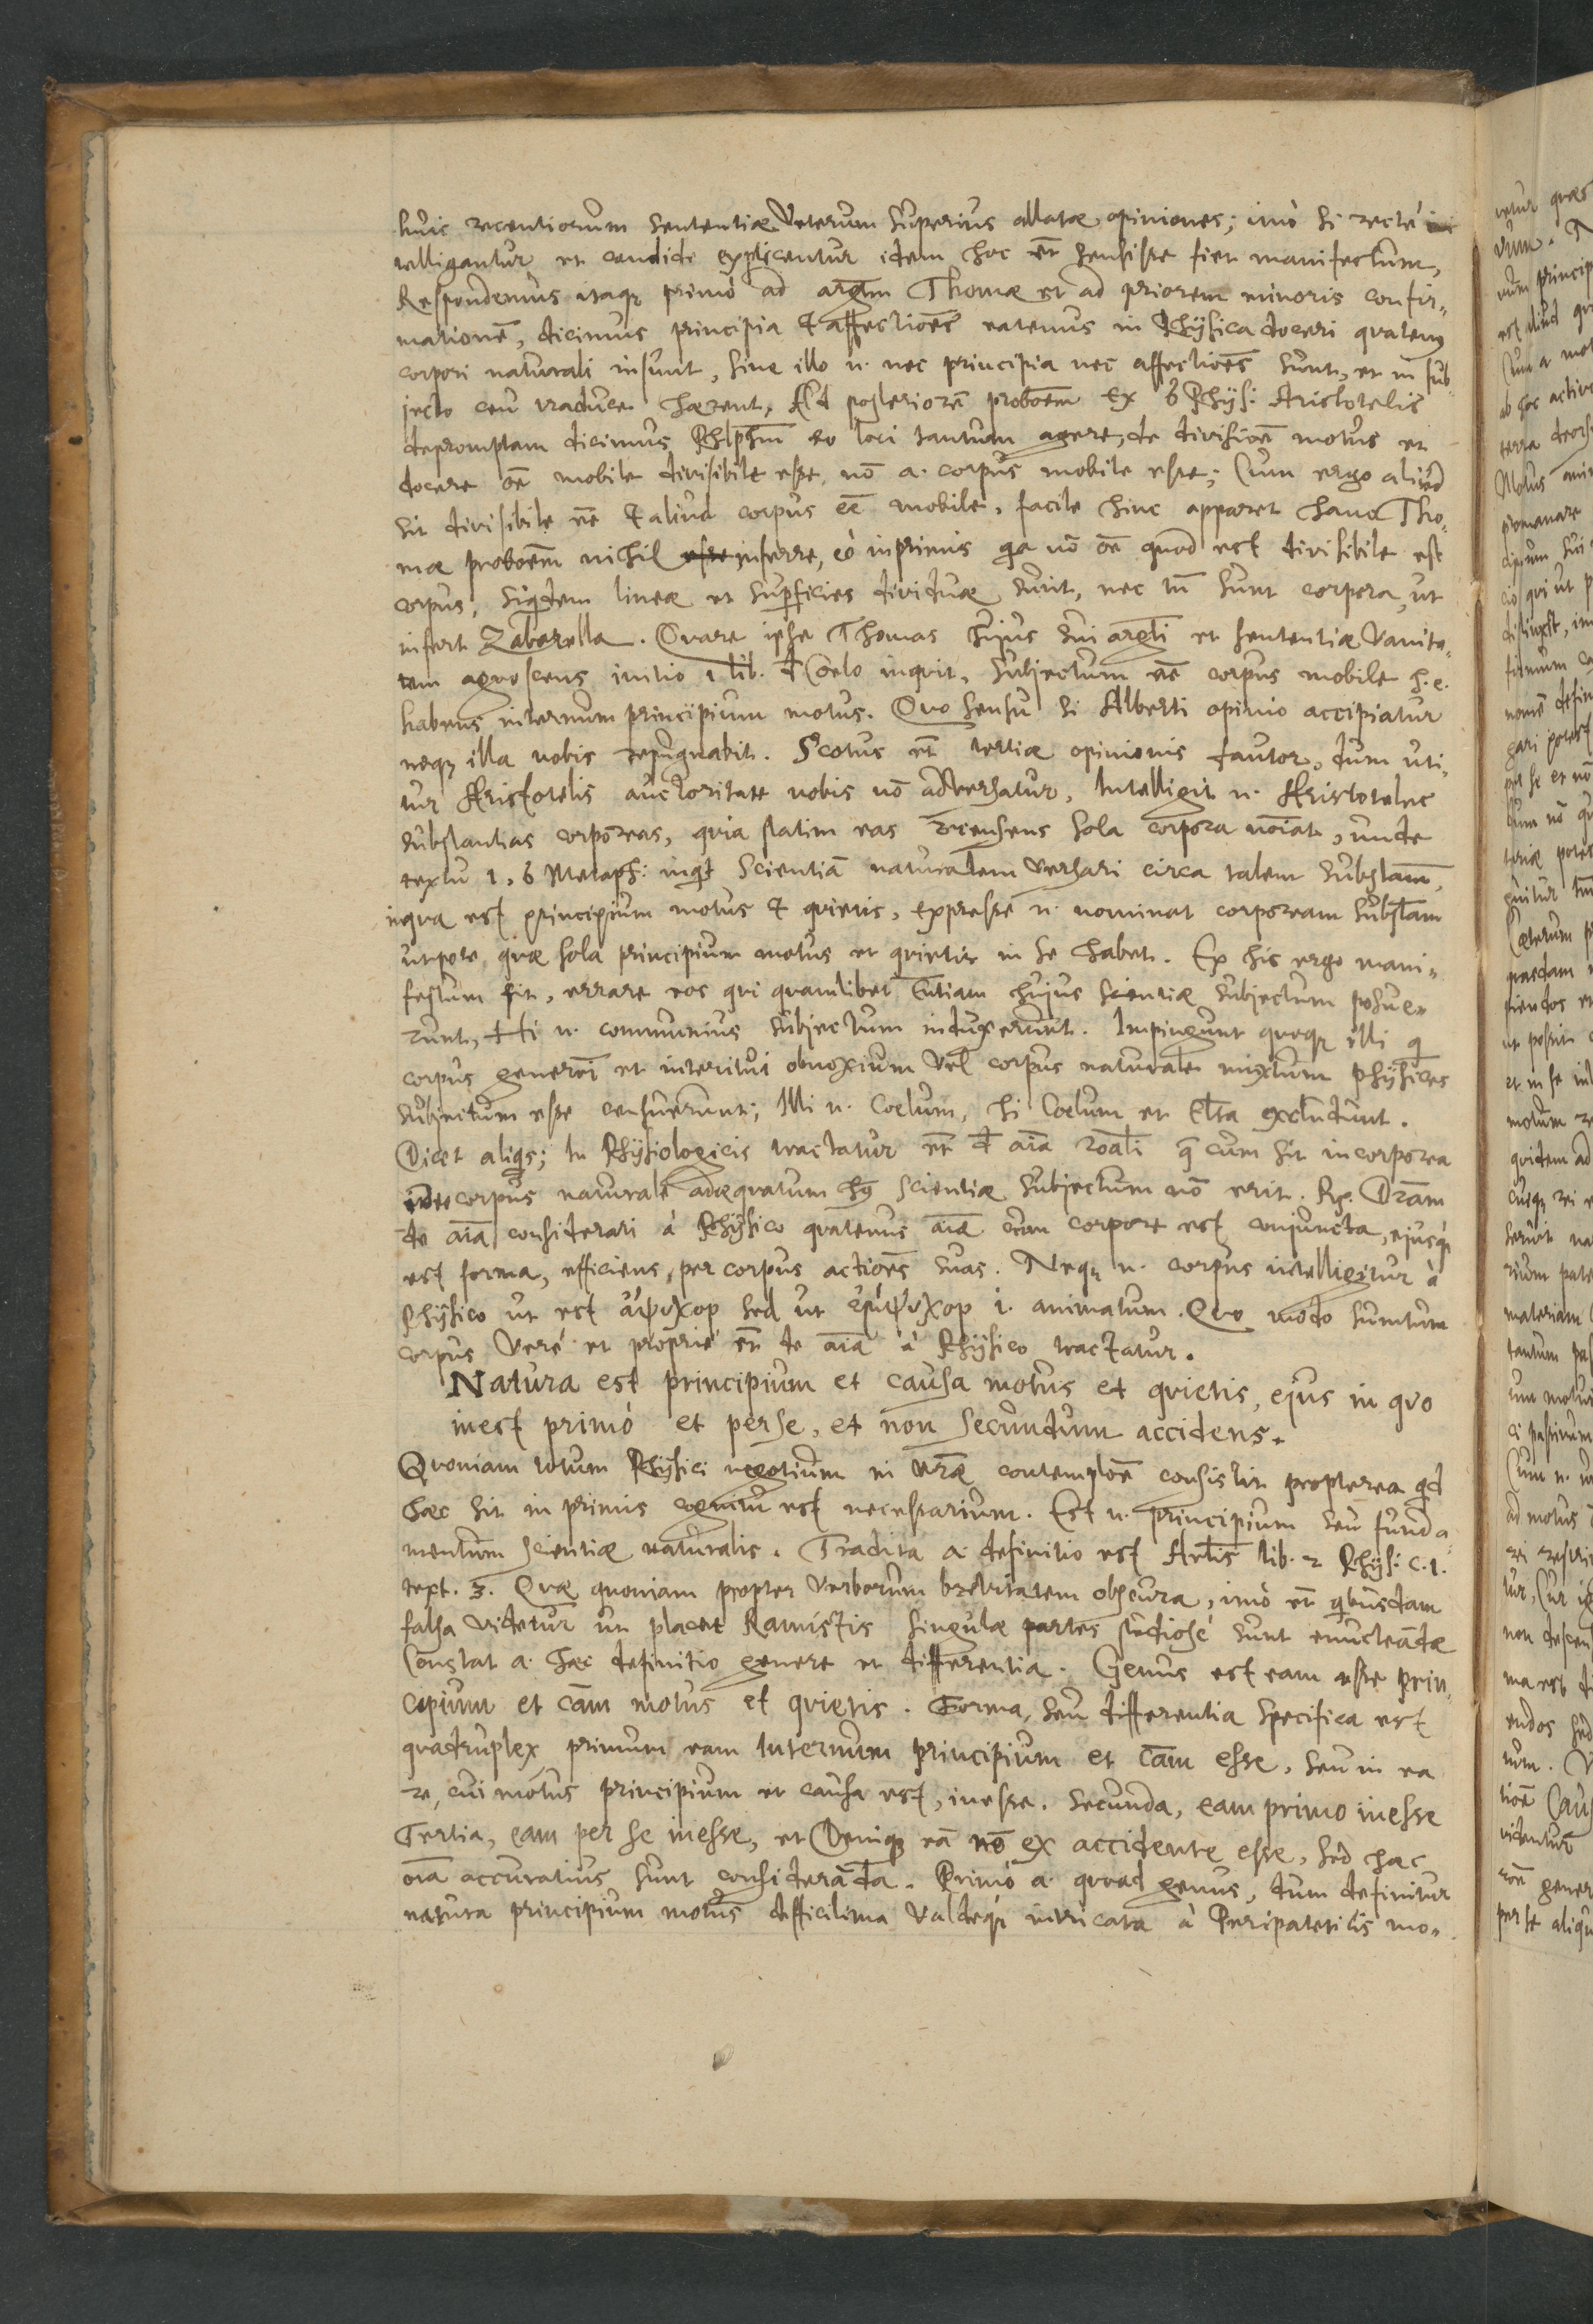 huic recentiorum sententiæ Veterum superius allatæ opiniones; imò si rectè in
telligantur et candidè explicentur idem hoc et̄ sensisse fiet manifestum,
Respondemus itaqꝫ primò ad argm̄ Thomæ et ad priorem minoris confir-
mationē, dicimus principia & affectiōēs eatenus in Physica doceri quatenꝯ
corpori naturali insunt, sine illo n. nec principia nec affectiōēs sunt, et in sub-
jecto ceu traduce hærent, Ad posteriorē probōēm Ex 6 Phys: Aristotelis
depromptam dicimus Phl̄phm̄ eo loci tantum agere, de divisiōē motus et
docere ōē mobile divisibile esse, nō a. corpus mobile esse; Cum ergo aliud
sit divisibile eē & aliud corpus eē mobile, facile hinc apparet hanc Tho-
mæ probōēm nihil inferre, eò inprimis qa nō ōē quod est divisibile est
corpus, siqdem lineæ et superficies dividuæ sunt, nec tn̄ sunt corpora, ut
infert Zabarella. Quare ipse Thomas hujus sui argti et sententiæ Vanita-
tem agnoscens initio 1 lib. d Cœlo inquit, subjectum eē corpus mobile h.e.
habens internum principium motus. Quo sensu si Alberti opinio accipiatur
neqꝫ illa nobis repugnabit. Scotus et̄ tertiæ opinionis fautor, dum uti-
tur Aristotelis auctoritate nobis nō adversatur, Intelligit n. Aristoteles
substantias corporeas, quia statim eas recensens sola corpora nōīat, unde
textu 1, 6 Metaph: inqt Scientiā naturalem versari circa talem substam̄,
inqua est principium motus & quietis, expresse n. nominat corpoream substam̄
utpote quæ sola principium motus et quietis in se habet. Ex his ergo mani-
festum fit, errare eos qui quamlibet Entiam hujus scientiæ subjectum posue-
runt, Hi n. communius subjectum induxerunt. Impingunt quoqꝫ illi q
corpus generōī et interitui obnoxium vel corpus naturale mixtum physices
subjectum esse censuerunt; Illi n. Cœlum, hi Cœlum et Elta excludunt.
Dicet aliqs; In Physiologicis tractatur et̄ d āīā roāli q cum sit incorporea
ideo corpus naturale adæquatum hꝯ scientiæ subjectum nō erit. Rp. Dr̄am
de āīā considerari à Physico quatenus āīā cum corpore est conjuncta, ejusqꝫ
est forma, efficiens per corpus actiōēs suas. Neqꝫ n. corpus intelligitur à
Physico ut est ἄψυχον sed ut ἔμψυχον i. animatum. Quo modo sumtum
corpus Verè et propriè et̄ de āīā à Physico tractatur.
Natura est principium et causa motus et quietis, ejus in quo
inest primò et per se, et non secundum accidens.
Quoniam totum Physici negotium in nr̄æ contemplōē consistit propterea qd
hæc sit in primis cognitu est necessarium. Est n. principium seu funda-
mentum scientiæ naturalis. Tradita a. definitio est Artlis lib. 2 Phys: c.1.
text. 3. Quæ quoniam propter verborum brevitatem obscura, imò et̄ qbusdam
falsa videtur ut placet Ramistis singulæ partes studiosè sunt enucleandæ
Constat a. hæc definitio genere et differentia. Genus est eam esse prin-
cipium et cām motus et quietis. Forma, seu differentia specifica est
quadruplex primum eam internum principium et cām esse, seu in ea
re, cui motus principium et causa est, inesse. Secunda, eam primo inesse
Tertia, eam per se inesse, et Deniqꝫ eā nō ex accidente esse, sed hæc
oīa accuratius sunt consideranda. Primò a. quoad genus, dum definitur
natura principium motus difficilima valdeqꝫ intricata à Peripateticis mo-